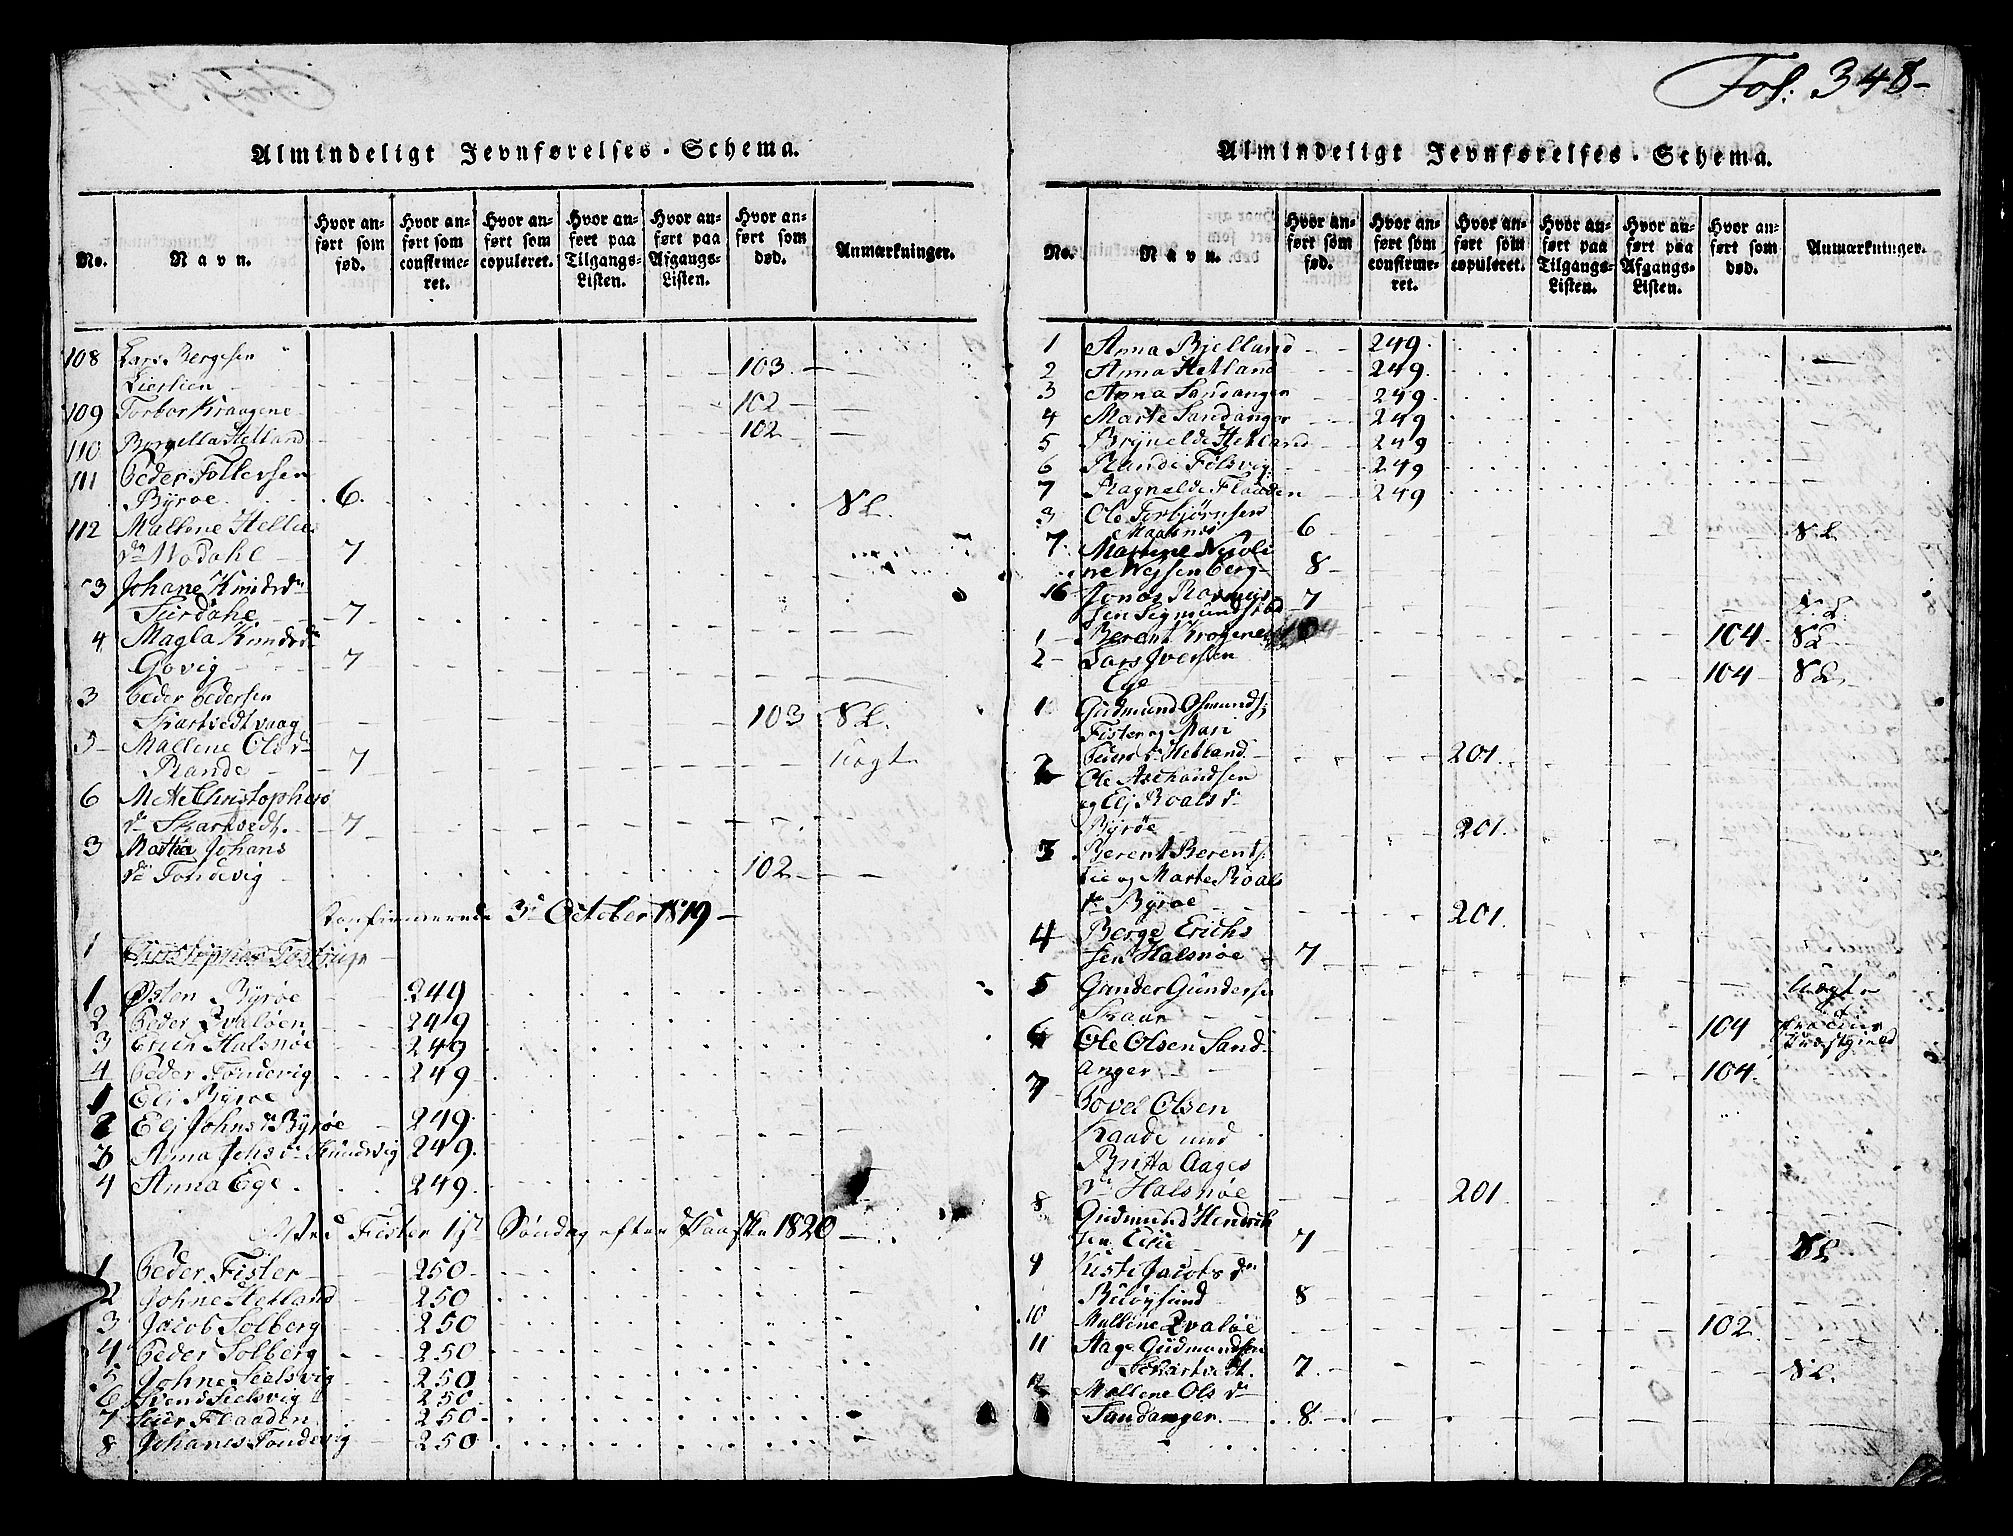 Fol: 348-
Almindeligt Jevnførelses-Schema.
No.
Navn.
Hvor anført som fød.
Hvor anført som confirmeret.
Hvor anført som copuleret.
Hvor anført paa Tilgangs-Listen.
Hvor anført paa Afgangs-Listen.
Hvor anført som død.
Anmærkninger.
108 Lars Bergesen
Lierlien 103
109 Torbor Kraagene 102
110 Borgilla Hetland 102
111 Peder Tollersen
Byrøe 6. N L.
112 Mallene Hellies
dr Modahl 7
3 Johane Knudsdr
Surdahl 7
4 Magla Knudsdr
Govig 7
3 Peder Pedersen
Skartvedt vaag 103 N L.
5 Mallene Olsdr
Rande 7 Uægte
6 Mette Christophers
dr Skartvedt. 7
3 Johans
dr Tondevig 102
Confirmerede 3d October 1819
1 Christopher
1 Østen Byrøe 249
2 Peder Qvaløen 249
3 Erich Halsnøe 249
4 Peder Tondevig 249
1 Eli Byrøe
2 Elj Johnsdr Byrøe 249.
3 Anna Johsdr Knudsvig 249.
4 Anna Ege 249.
Ved Fister 1st Søndag efter Paaske 1820
1 Peder Fister 250
2 Johne Hetland 250
3 Jacob Solberg 250
4 Peder Solberg 250
5 Johne Seelsvig 250
6 Svend Seelsvig 250
7 Siur Flaaden 250
8 Johanes Tondevig 250
Almindeligt Jevnførelses-Schema.
No.
Navn.
Hvor anført som fød.
Hvor anført som confirmeret.
Hvor anført som copuleret.
Hvor anført paa Tilgangs-Listen.
Hvor anført paa Afgangs-Listen.
Hvor anført som død.
Anmærkninger.
1 Anna Bjelland 249.
2 Anna Hetland 249.
3 Anna Sandanger 249
4 Marte Sandanger 249
5 Brynelde Hetland 249
6 Rande Felsvig 249
7 Ragnelde Flaaden 249
3 Ole Torbjørnsen
6 N L
7 Martine Nicoli
ne Wejsenberg 8
16 Jonas Rasmus
sen Sigmundstad 7 N L
1 Berent Krogene 104 N L
2 Lars Iversen
Ege 104 N L
1 Gudmund Osmunds.
Fister og Mari
Peders dr Hetland 201.
2 Ole Aschandsen
og Elj Roalsdr
Byrøe 201.
3 Berent Berents.
Lie og Marte Roals
dr Byrøe 201.
4 Berge Erichs
sen Halsnøe 7
5 Gunder Gundersen Uægte
Skaar 104
6 Ole Olsen Sand-
anger 104.
7 Povel Olsen
Kaade med
Britta Aages
dr Halsnøe 201
8 Gudmund Hendrich
sen Eide 7 N L
9 Kisti Jacobsdr
Buøysund 8
10 Mallene Qvaløe 102
11 Aage Gudmundsen
Schartvedt. 7. N L.
12 Mallene Olsdr
Sandanger 8